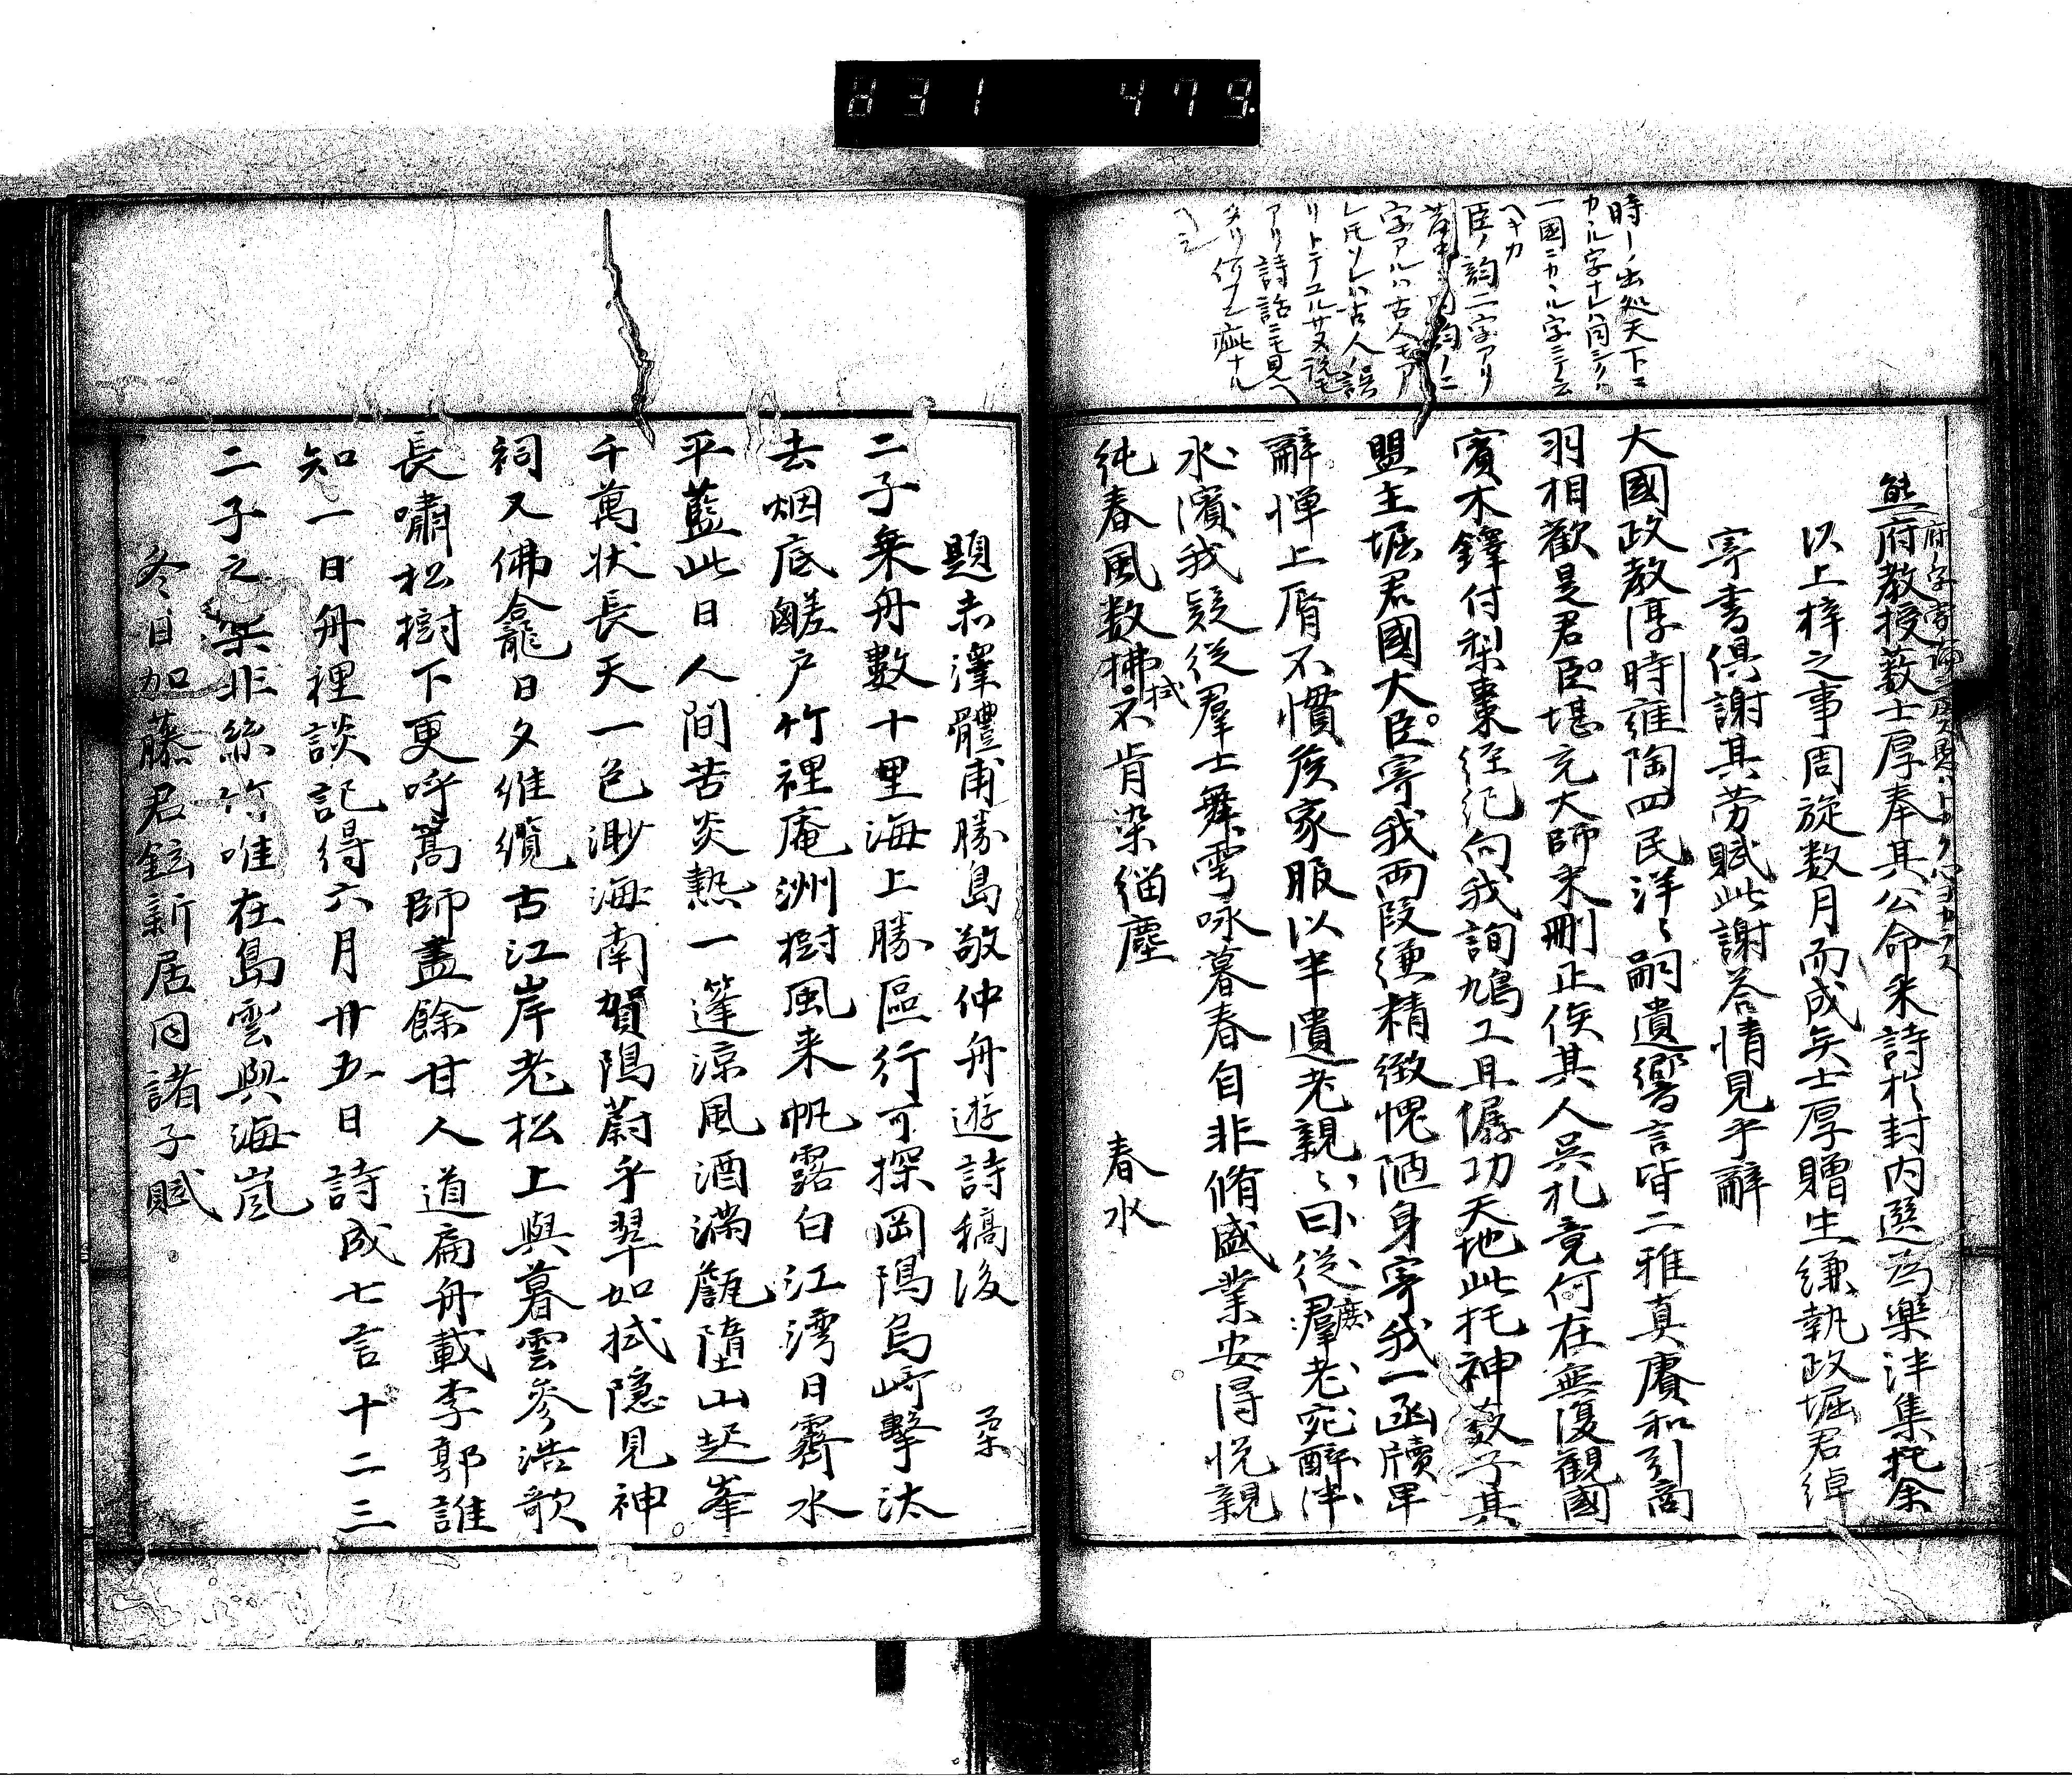 831 479
時ノ出処天下ニ
カヽル字ナレハ同シクハ
一國ニカヽル字ニテ云
ヘキカ
臣ノ韵二字アリ
字アルハ古人モア
レ𪜈ソレハ古人ノ誤
アリ詩話ニモ見ヘ
タリ何フモ疵ナル
ヘシ
熊府教授薮士厚奉其公命采詩於封内選為樂泮集托余
以上梓之事周旋数月而成矣士厚贈生縑執政堀君綽
寄書俱謝其労賦此謝荅情見乎辭
大國政教淳時雍陶四民洋〻嗣遺響言皆二雅真賡和引商
羽相歡是君臣堪充大師采刪正俟其人呉札竟何在無復觀國
賓木鐸付梨棗経紀向我詢鳩工且僝功天地此托神薮子其
盟主堀君國大臣寄我両段縑精緻愧陋身寄我一函牘卑
辭憚上脣不慣侯家服以半遺老親〻曰從羣老宛酔泮
水濱我疑從羣士舞雩咏暮春自非脩盛業安得悦親
純春風数拂不肯染緇塵
春水
題赤澤體甫勝島敬仲舟遊詩稿後
二子乗舟數十里海上勝區行可探岡隝烏﨑擊汰
去烟底鹺戸竹裡庵洲樹風来帆露白江湾日霽水
平藍此日人間苦炎熱一篷涼風酒満甔墮山起峯
千萬状長天一色渺海南賀隝蔚乎翠如拭隠見神
祠又佛龕日夕維纜古江岸老松上與暮雲參浩歌
長嘯松樹下更呼篙師盡餘甘人道扁舟載李郭誰
知一日舟裡談記得六月廿五日詩成七言十二三
二子之樂非絲竹唯在島雲與海嵐
冬日加藤君鉉新居同諸子賦